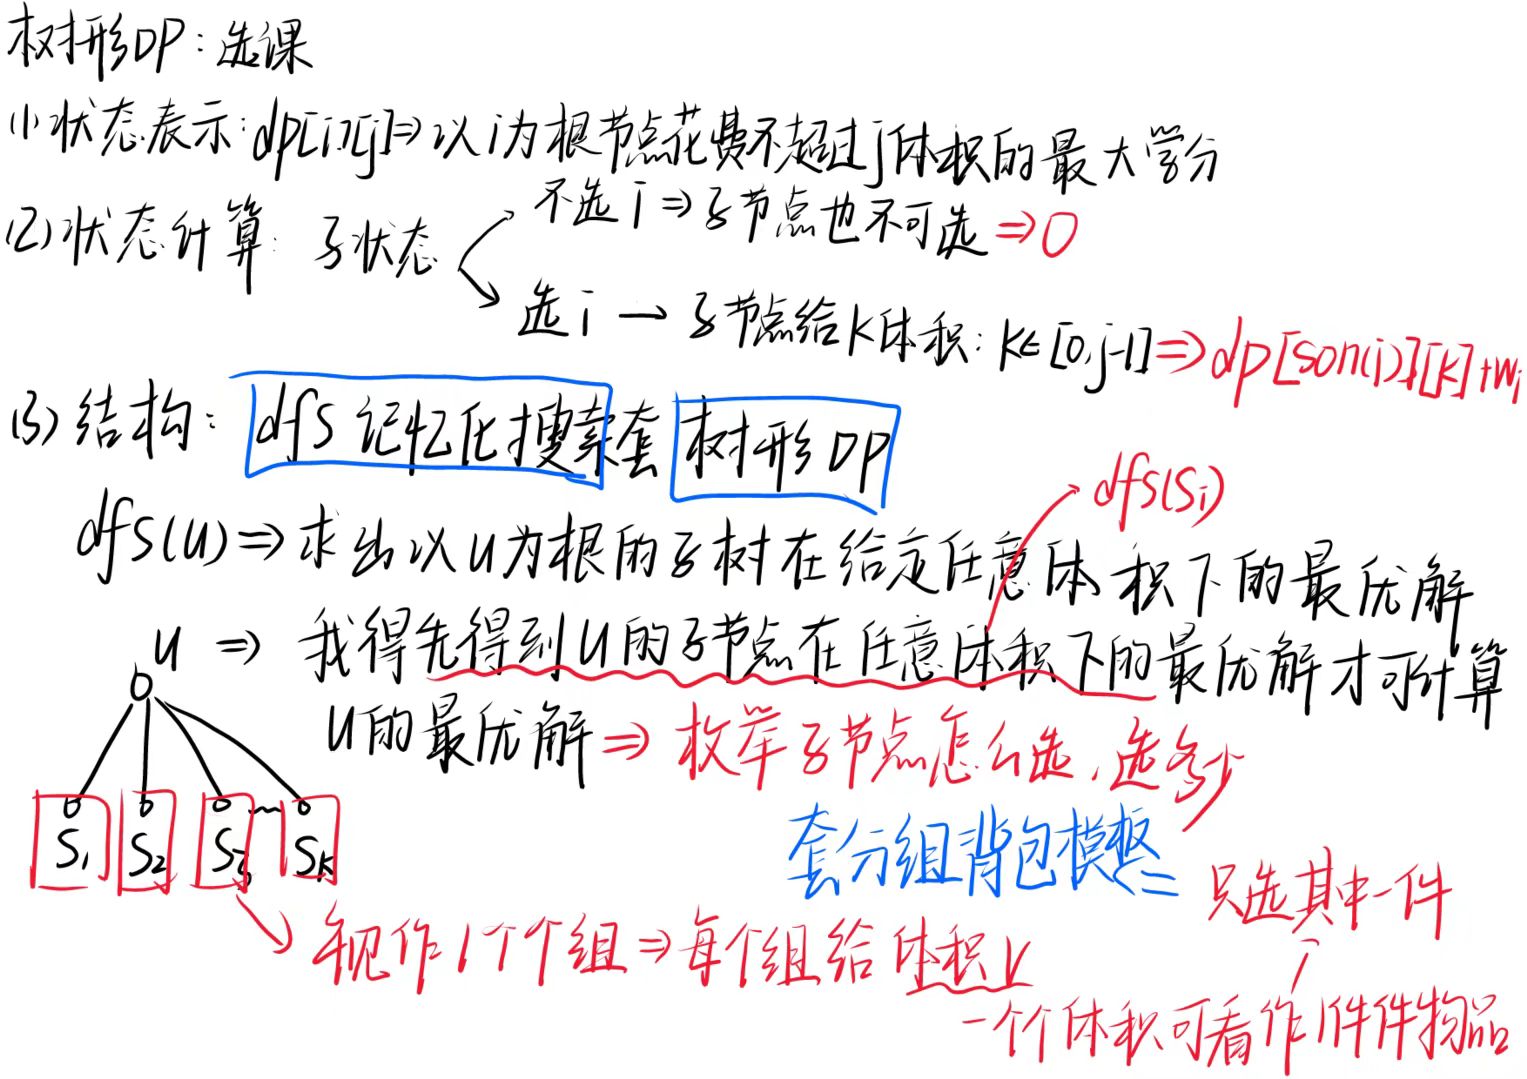 树形DP:选课
(1)状态表示:dp[i][j]⇒以i为根节点花费不超过j体积的最大学分
(2)状态计算:子状态
不选i⇒子节点也不可选⇒0
选i→子节点给k体积:k∈[0,j-1]⇒dp[son(i)][k]+wi
(3)结构:dfs记忆化搜索套树形DP
dfs(Si)
dfs(u)⇒求出以u为根的子树在给定任意体积下的最优解
u⇒我得先得到u的子节点在任意体积下的最优解才可计算
u的最优解⇒枚举子节点怎么选,选多少
S1 S2 S3 ~ Sk
套分组背包模板⇐
只选其中一件
视作1个个组⇒每个组给体积V
一个个体积可看作1件件物品